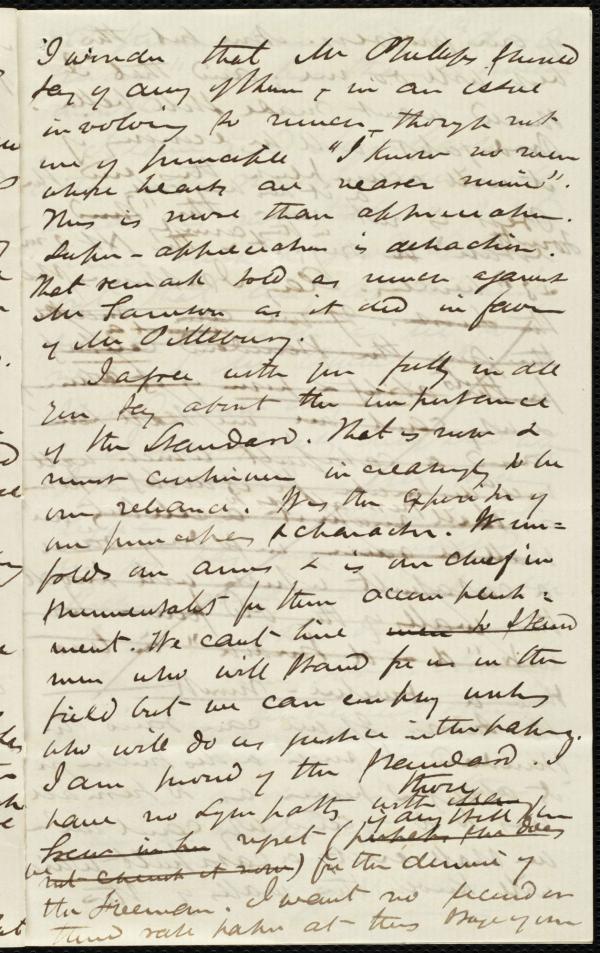 I wonder that Mr Phillips should
say of any of them, in an issue
involving so much, though not
one of principle "I know no men
whose hearts are nearer mine".
This is more than appreciation.
Super-appreciation is detraction.
That remark told as much against
Mr Garrison as it did in favor
of Mr Pillsbury.
I agree with you fully in all
you say about the importance
of the Standard. That is now &
must continue increasingly to be
our reliance. It is the expositor of
our principles & character. It un=
folds our aims & is our chief in
strumentality for their accomplish=
ment. We can't hire men to stand
men who will stand for us in the
field but we can employ writers
who will do us justice in the paper.
I am proud of the Standard. I
have no sympathy with those
if any still
regret (perhaps she does
not cherish it now) for the demise of
the Freeman. I want no second or
third rate paper at this stage of our